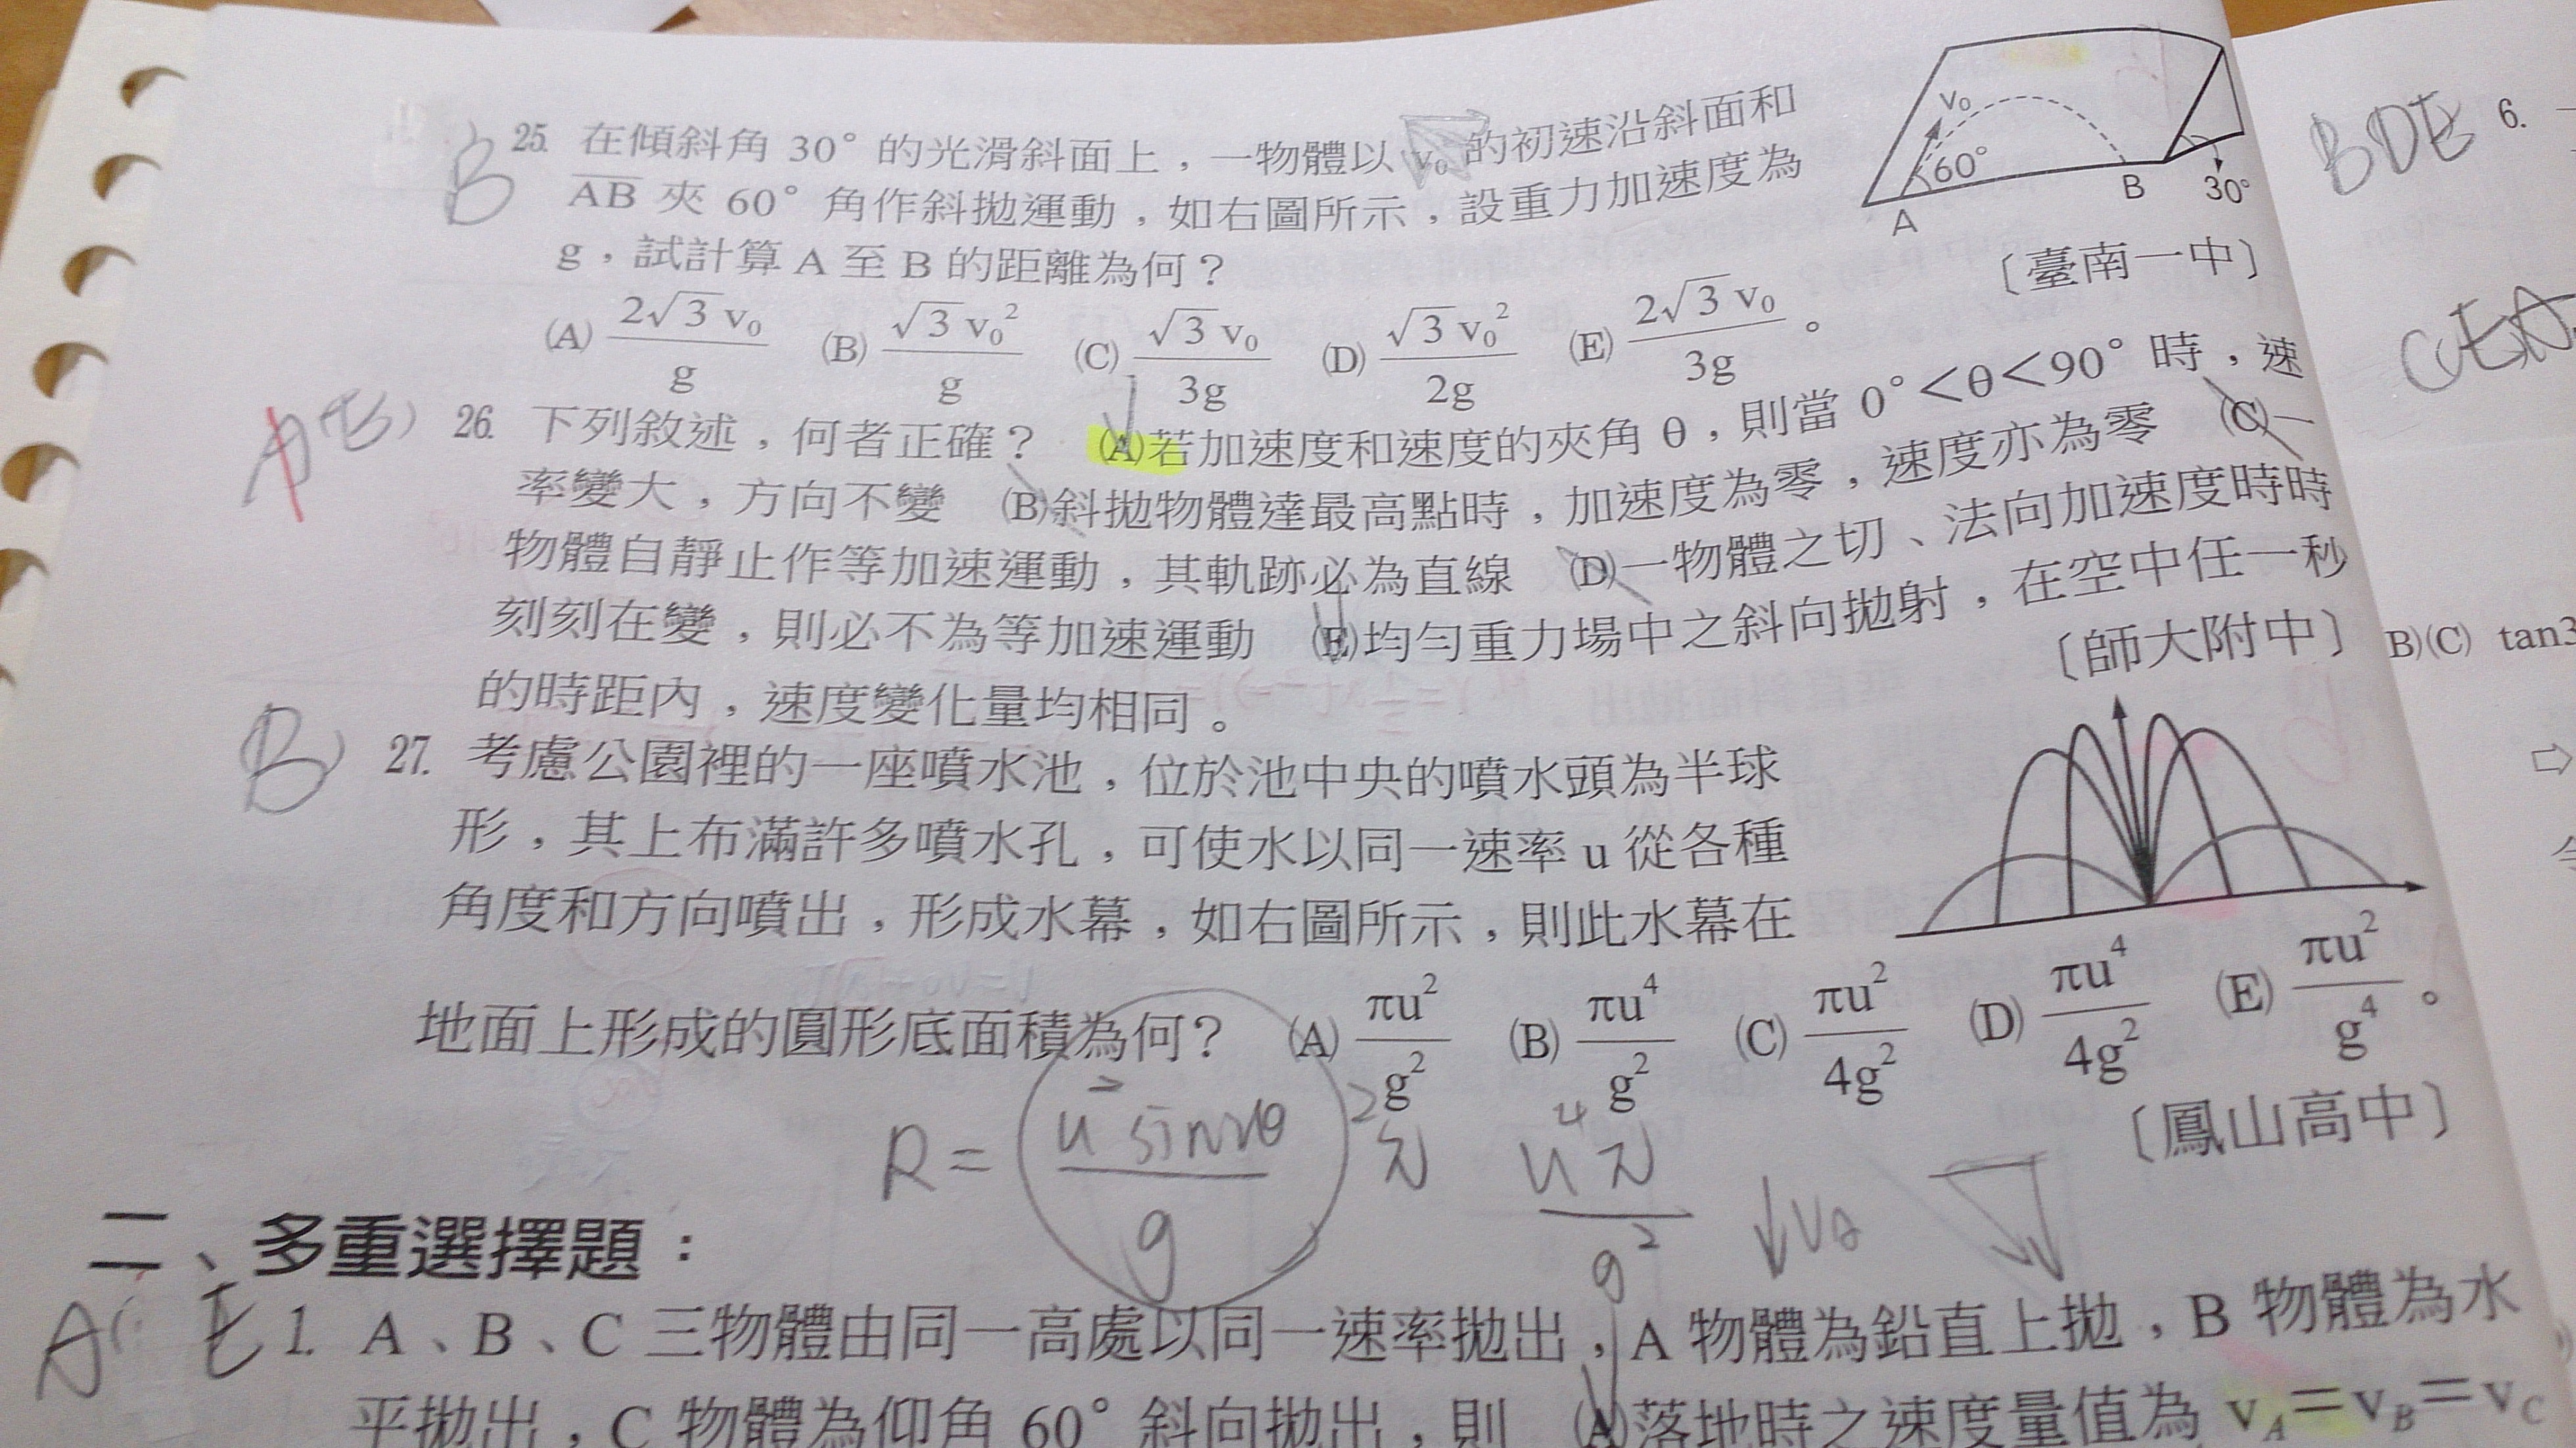 B 25. 在傾斜角 30° 的光滑斜面上，一物體以 v₀ 的初速沿斜面和
AB 夾 60° 角作斜拋運動，如右圖所示，設重力加速度為
g，試計算 A 至 B 的距離為何？
〔臺南一中〕
v₀
60°
A
B
30°
(A) 2√3 v₀/g (B) √3 v₀²/g (C) √3 v₀/3g (D) √3 v₀²/2g (E) 2√3 v₀/3g 。
26. 下列敘述，何者正確？ (A)若加速度和速度的夾角 θ，則當 0°<θ<90° 時，速
率變大，方向不變 (B)斜拋物體達最高點時，加速度為零，速度亦為零 (C)一
物體自靜止作等加速運動，其軌跡必為直線 (D)一物體之切、法向加速度時時
刻刻在變，則必不為等加速運動 (E)均勻重力場中之斜向拋射，在空中任一秒
的時距內，速度變化量均相同。
〔師大附中〕
B 27. 考慮公園裡的一座噴水池，位於池中央的噴水頭為半球
形，其上布滿許多噴水孔，可使水以同一速率 u 從各種
角度和方向噴出，形成水幕，如右圖所示，則此水幕在
地面上形成的圓形底面積為何？ (A) πu²/g² (B) πu⁴/g² (C) πu²/4g² (D) πu⁴/4g² (E) πu²/g⁴ 。
〔鳳山高中〕
R = (u² sin2θ/g)² π
u⁴π/g²
二、多重選擇題：
1. A、B、C 三物體由同一高處以同一速率拋出，A 物體為鉛直上拋，B 物體為水
平拋出，C 物體為仰角 60° 斜向拋出，則 (A)落地時之速度量值為 vA＝vB＝vC
BDE 6.
B)(C) tan3